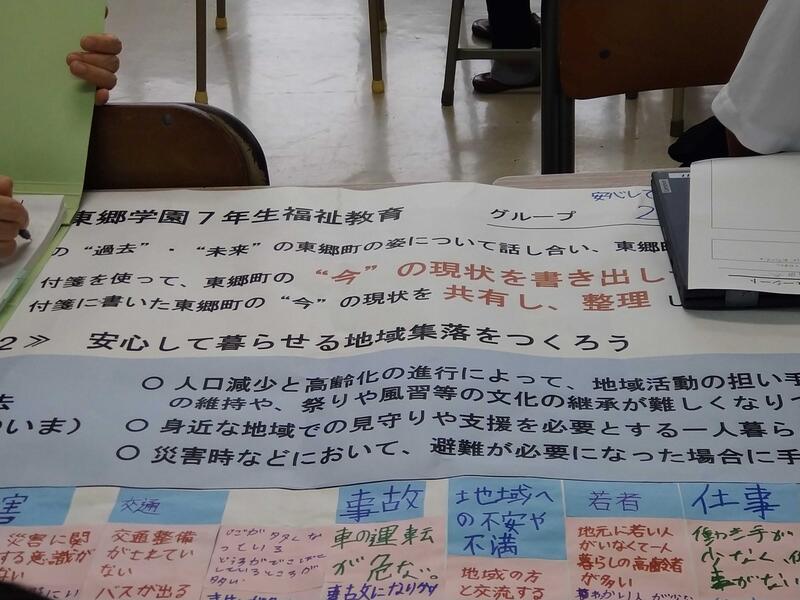 東郷学園7年生福祉教育
グループ 2
安心して
の “過去”・“未来”の東郷町の姿について話し合い、東郷町
付箋を使って、東郷町の “今” の現状を書き出し
付箋に書いた東郷町の “今” の現状を 共有し、整理し
2≫ 安心して暮らせる地域集落をつくろう
○ 人口減少と高齢化の進行によって、地域活動の担い手
の維持や、祭りや風習等の文化の継承が難しくなりつ
いま)
○ 身近な地域での見守りや支援を必要とする一人暮ら
○ 災害時などにおいて、避難が必要になった場合に手
害
災害に関
する意識が
ない
交通
交通整備
がされてい
ない
バスが出る
っている
多い
事故
車の運転
が危ない。
地域へ
の不安や
不満
地域の方
と交流する
若者
地元に若い人
がいなくて一人
暮らしの高齢者
が多い
仕事
働き手が
少なく、